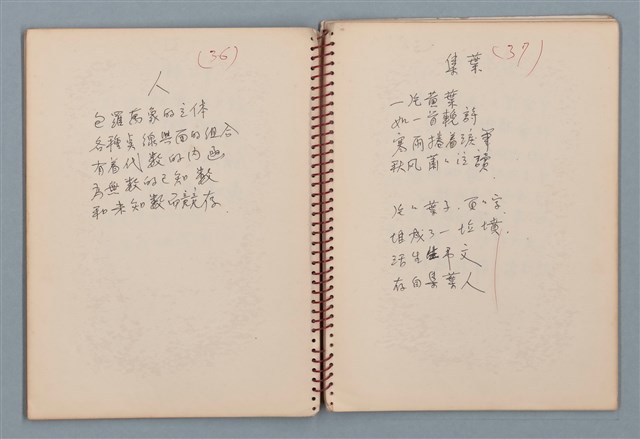 (36)
人
包羅萬象的立体
各種貞線與面的組合
有着代数的内函
為無数的已知数
和未知数而競存
(37)
集葉
一片黄葉
如一首輓詩
寒雨播着淚
秋风蕭〃泣讀
片〃葉子.頁〃字
堆成了一垃墳
活生生弔文
存自集葉人